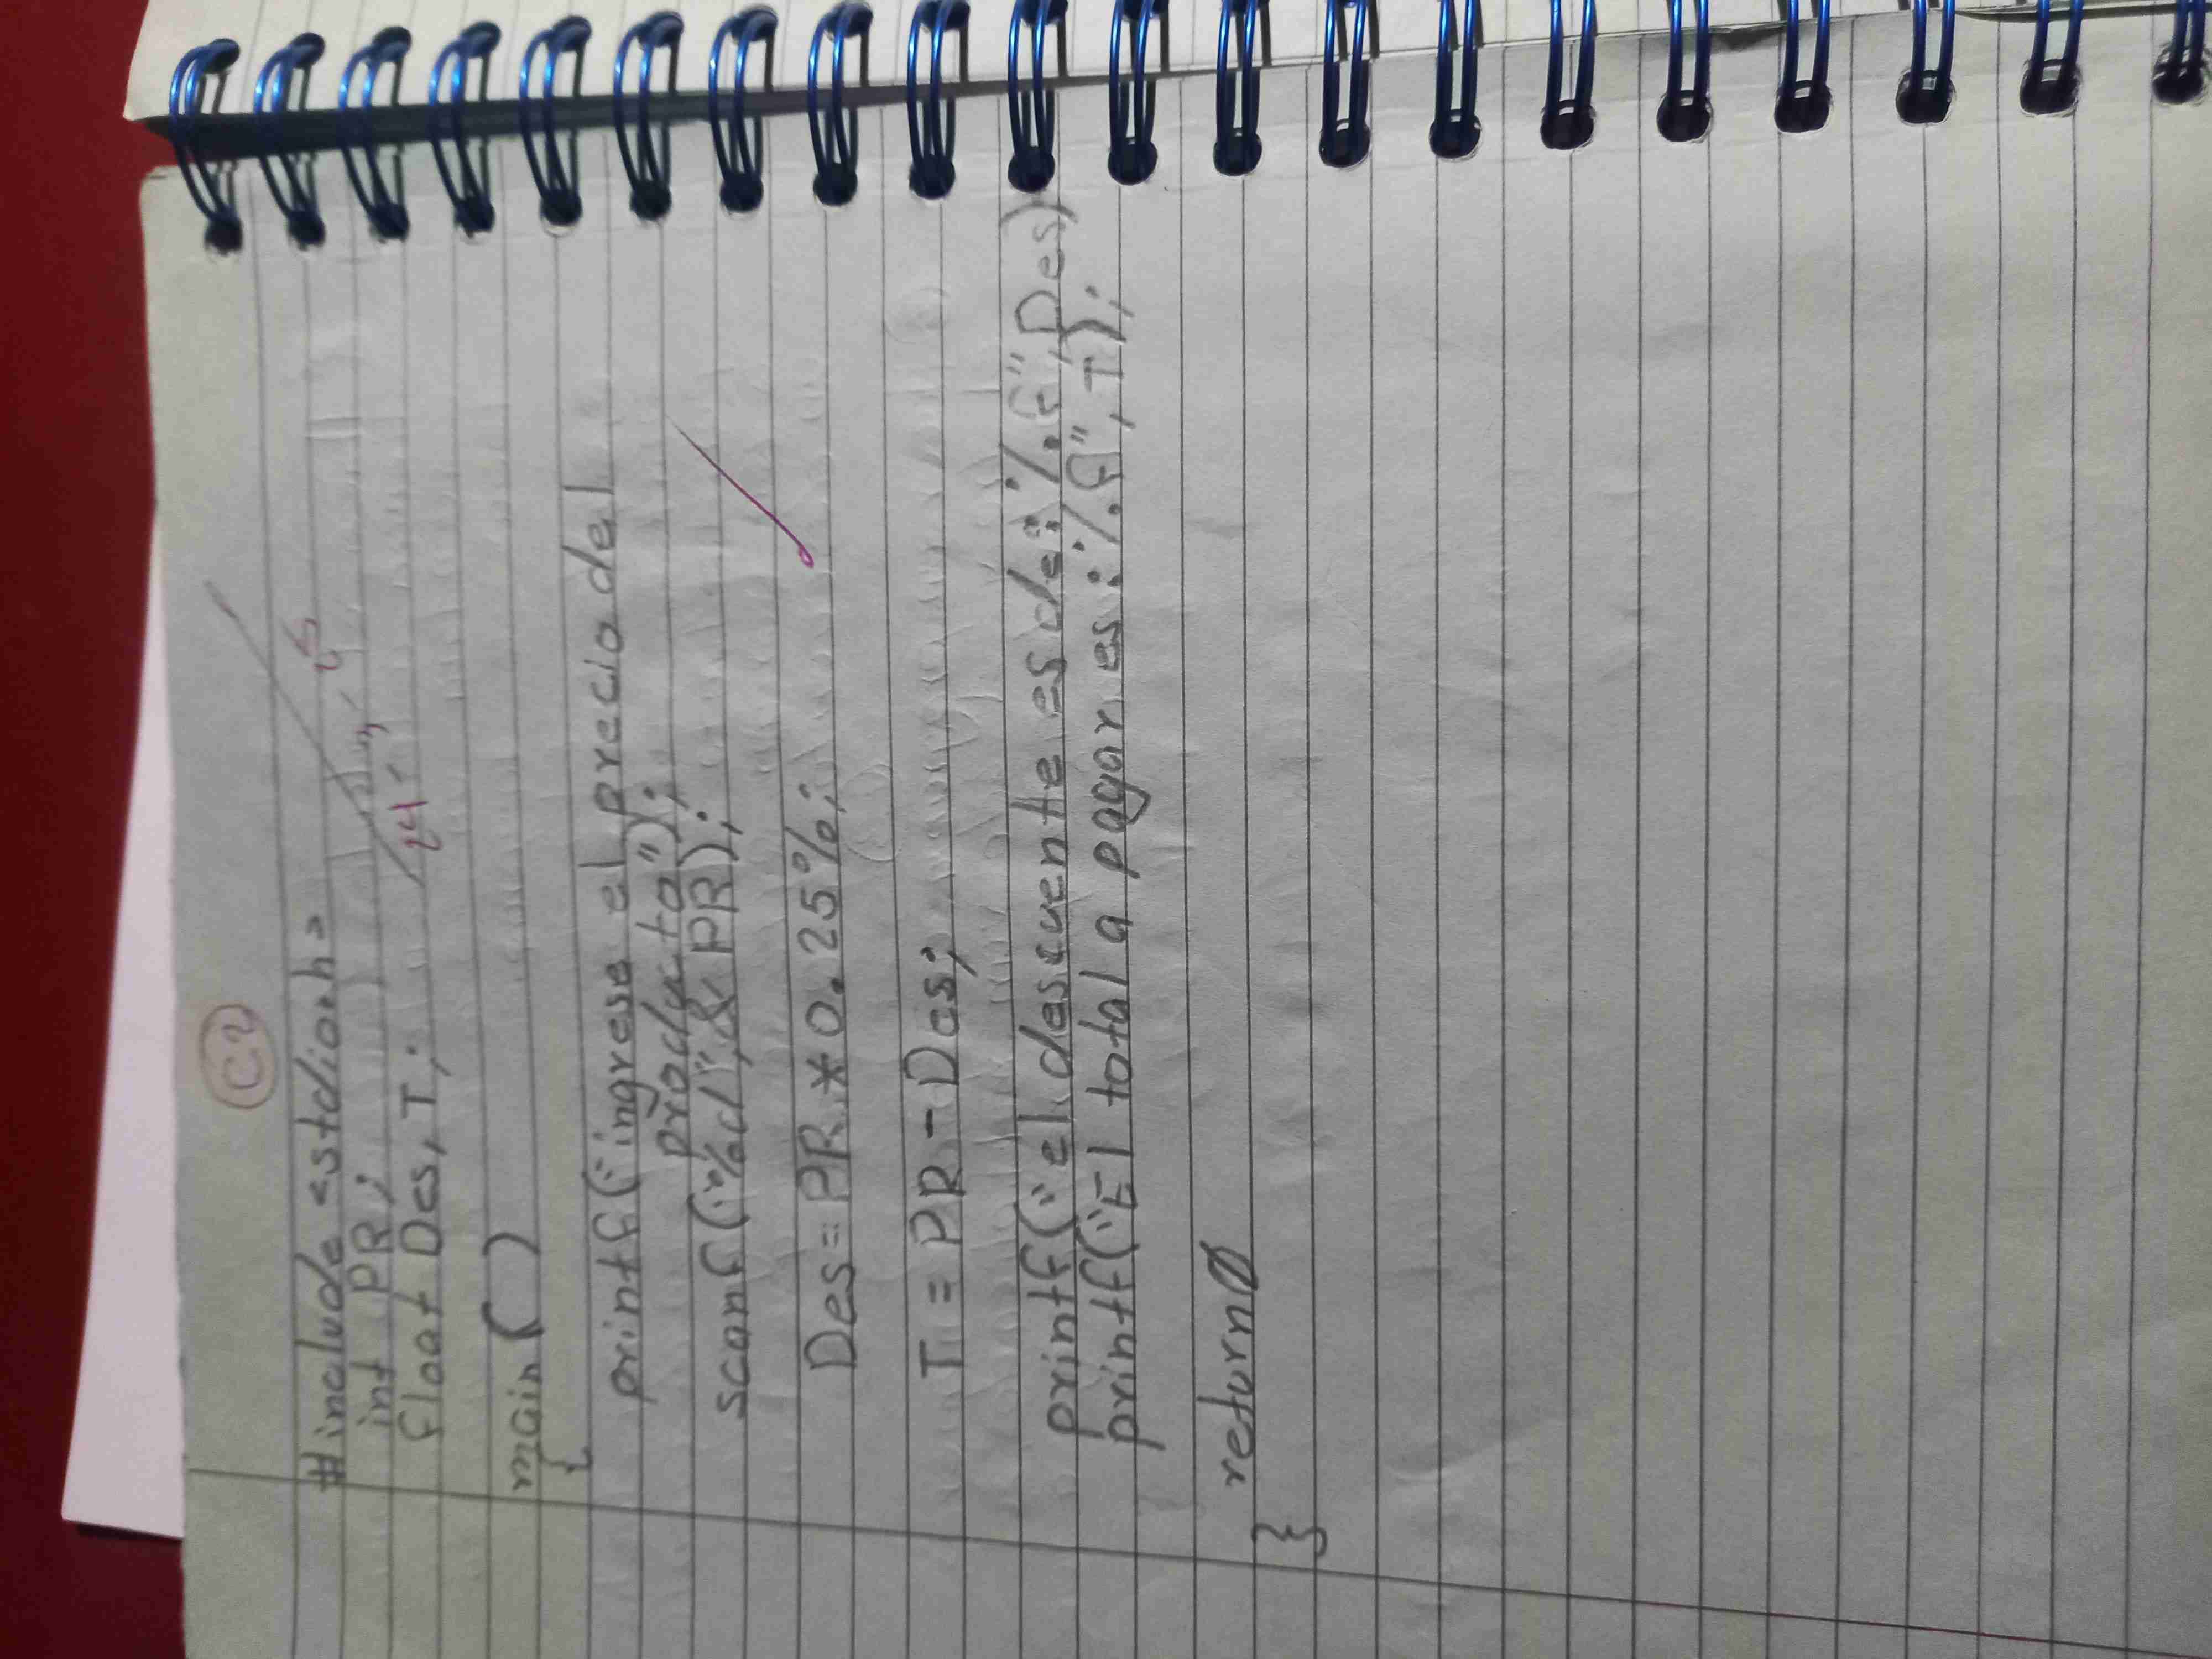 C2
#include <stdionh>
int PR;
float Des, T;
main()
{
printf("ingrese el precio del
producto");
scanf("%d",& PR);
Des=PR*0.25%;
T=PR-Des;
printf("el descuente es de: %.f",Des)
printf("El total a pagar es: %.f",T);
return0
}